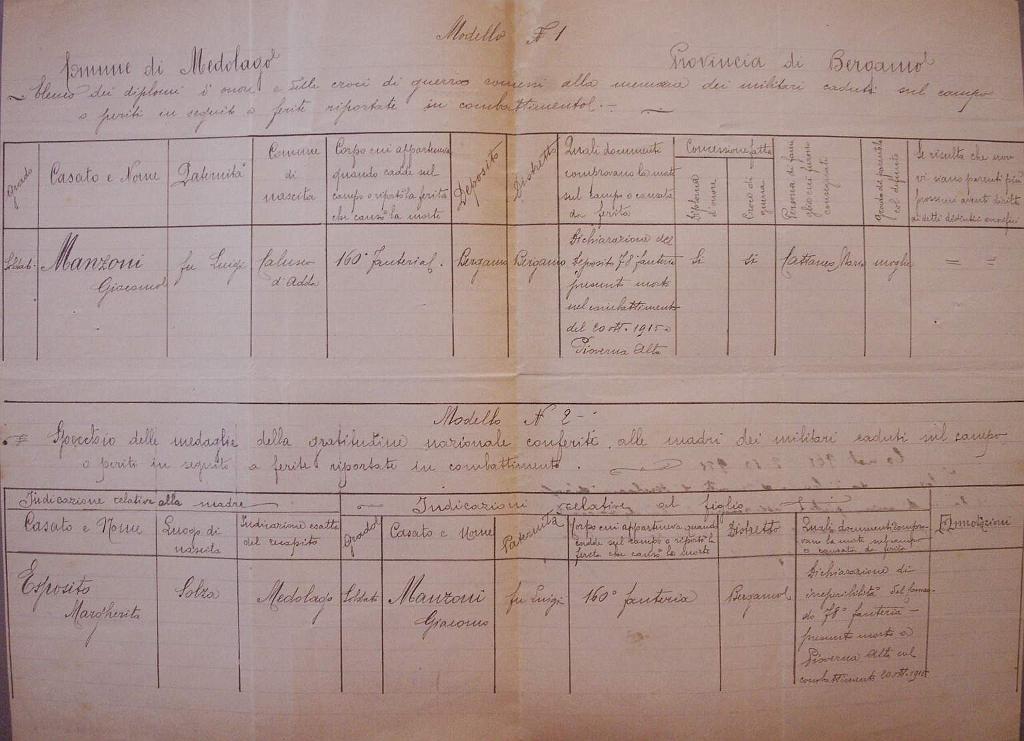 Modello N° 1
Comune di Medolago
Provincia di Bergamo
Elenco dei diplomi d'onore e delle croci di guerra concessi alla memoria dei militari caduti sul campo
o periti in seguito a ferite riportate in combattimento.
Grado
Casato e Nome
Paternità
Comune
di
nascita
Corpo cui apparteneva
quando cadde sul
campo o riportò la ferita
che causò la morte
Deposito
Distretto
Quali documenti
comprovano la morte
sul campo o causata
da ferita
Concessione fatta
Diploma
d'onore
Croce di
guerra
Persona di fami
glia cui furono
consegnati
Grado di parentela
col defunto
Se risulta che non
vi siano parenti più
prossimi aventi diritto
ai detti distintivi onorifici
Soldato
Manzoni
Giacomo
fu Luigi
Calusco
d'Adda
160° Fanteria
Bergamo
Bergamo
Dichiarazione del
Deposito 78° fanteria
presunto morto
nel combattimento
del 20 ott. 1915 a
Pioverna Alta
Si
Si
Cattaneo Maria
moglie
= =
Modello N° 2 -
Specchio delle medaglie della gratitudine nazionale conferite alle madri dei militari caduti sul campo
o periti in seguito a ferite riportate in combattimento.
Indicazione relative alla madre
Indicazioni relative al figlio
Annotazioni
Casato e Nome
Luogo di
nascita
Indicazione esatta
del recapito
Grado
Casato e Nome
Paternità
Corpo cui apparteneva quando
cadde sul campo o riportò la
ferita che causò la morte
Distretto
Quali documenti compro-
vano la morte sul campo
o causata da ferita
Esposito
Margherita
Solza
Medolago
Soldato
Manzoni
Giacomo
fu Luigi
160° fanteria
Bergamo
Dichiarazione di
irreperibilità del
do 78° fanteria -
presunto morto a
Pioverna Alta nel
combattimento 20 ott. 1915